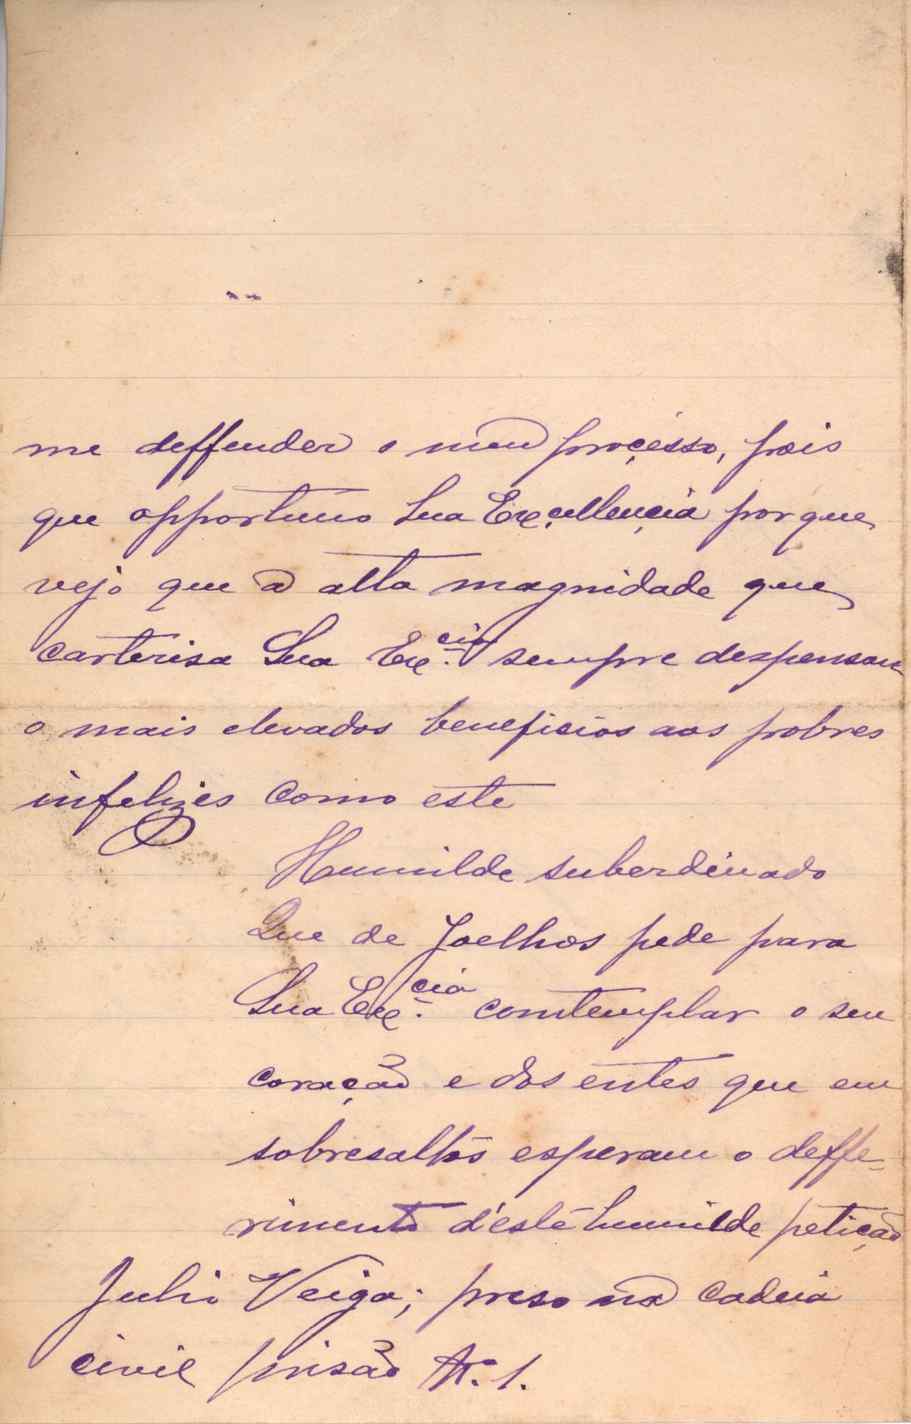 me deffender o meu proçésso, pois
que opportuno Sua Exçellençia por que
vejo que a alta magnidade que
carterisa Sua Exᶜⁱᵃ. sempre despensou
o mais elevados beneficios aos pobres
infelizes como este
Humilde suberdinado
Que de Joelhos pede para
Sua Exᶜⁱᵃ. comtemplar o seu
coração e dos entes que em
sobresaltos esperam o deffe-
rimento d'esté humilde petição
Julio Veiga; preso na cadeia
civil prisão N. 1.